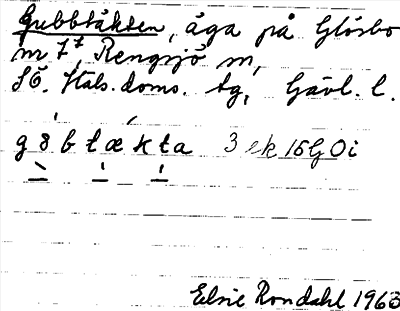 Gubbtäkten, äga på Glösbo
m 7², Rengsjö sn,
SÖ. Häls. doms. tg, Gävl. l.
g 8 b t æ k t a 3 ek 15G0i
Elsie Rondahl 1963